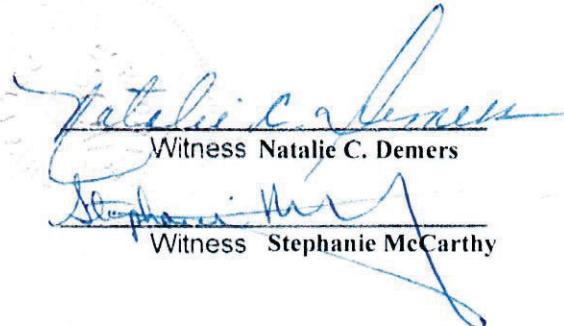 Natalie C. Demers
Witness Natalie C. Demers
Stephanie
Witness Stephanie McCarthy